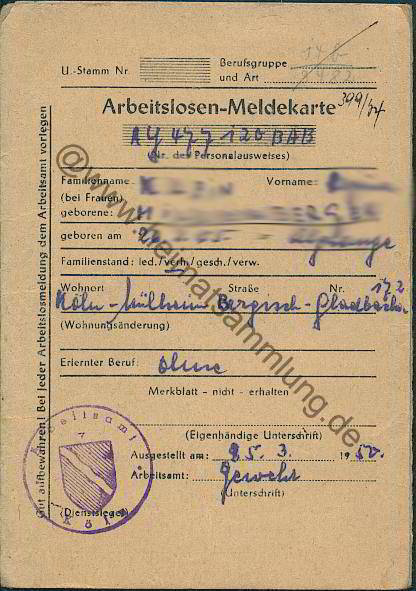 U.-Stamm Nr.
Berufsgruppe
und Art
Arbeitslosen-Meldekarte 399/
AY 477 120 BAB
(Nr. des Personalausweises)
Familienname: Vorname:
(bei Frauen)
geborene:
geboren am
Familienstand: led./verh./gesch./verw.
Wohnort Straße Nr. 172
Köln-Mülheim Bergisch-Gladbacher
(Wohnungsänderung)
Erlernter Beruf: ohne
Merkblatt - nicht - erhalten
(Eigenhändige Unterschrift)
Ausgestellt am: 25. 3. 1950.
Arbeitsamt:
(Unterschrift)
(Dienstsiegel)
Arbeitsamt
Köln
Gut aufbewahren! Bei jeder Arbeitslosmeldung dem Arbeitsamt vorlegen
@www.heimatsammlung.de